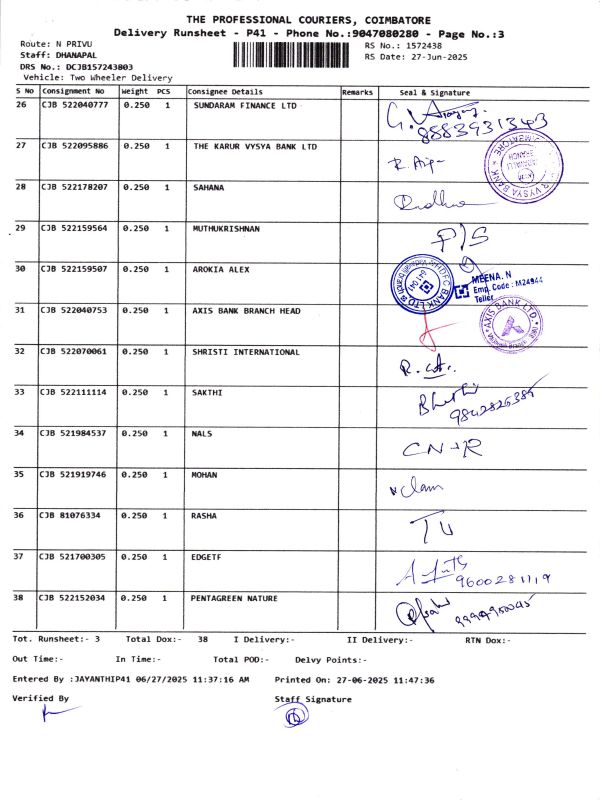 THE PROFESSIONAL COURIERS, COIMBATORE
Delivery Runsheet - P41 - Phone No.:9047080280 - Page No.:3
Route: N PRIVU
RS No.: 1572438
Staff: DHANAPAL
RS Date: 27-Jun-2025
DRS No.: DCJB157243803
Vehicle: Two Wheeler Delivery
S No Consignment No Weight PCS Consignee Details Remarks Seal & Signature
26 CJB 522040777 0.250 1 SUNDARAM FINANCE LTD
8883931343
27 CJB 522095886 0.250 1 THE KARUR VYSYA BANK LTD
28 CJB 522178207 0.250 1 SAHANA
29 CJB 522159564 0.250 1 MUTHUKRISHNAN P/S
30 CJB 522159507 0.250 1 AROKIA ALEX
HDFC BANK LTD
MEENA. N
Emp. Code : M24944
Teller
31 CJB 522040753 0.250 1 AXIS BANK BRANCH HEAD
AXIS BANK LTD.
32 CJB 522070061 0.250 1 SHRISTI INTERNATIONAL
33 CJB 522111114 0.250 1 SAKTHI
34 CJB 521984537 0.250 1 NALS
35 CJB 521919746 0.250 1 MOHAN
36 CJB 81076334 0.250 1 RASHA
37 CJB 521700305 0.250 1 EDGETF
9600281119
38 CJB 522152034 0.250 1 PENTAGREEN NATURE
Tot. Runsheet:- 3 Total Dox:- 38 I Delivery:- II Delivery:- RTN Dox:-
Out Time:- In Time:- Total POD:- Delvy Points:-
Entered By :JAYANTHIP41 06/27/2025 11:37:16 AM Printed On: 27-06-2025 11:47:36
Verified By Staff Signature